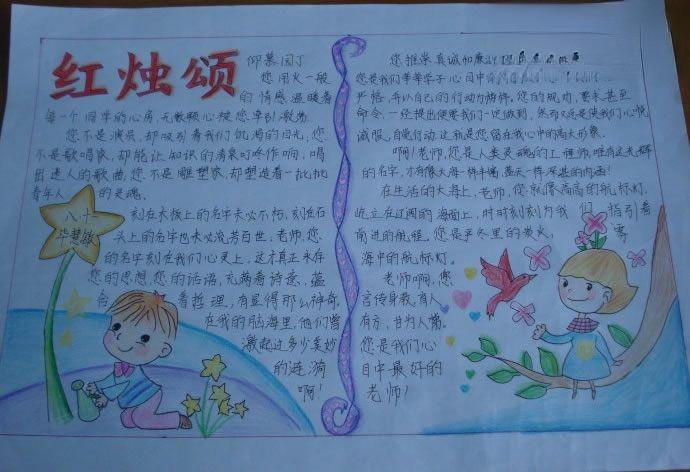 红烛颂
仰慕园丁
您用火一般
的情感温暖着
每一个同学的心房,无数颗心被您牵引激荡
您不是演员,却吸引着我们饥渴的目光,您
不是歌唱家,却能让知识的清泉叮咚作响,唱
出迷人的歌曲,您不是雕塑家,却塑造着一批批
青年人的灵魂。
八十
华慧敏
刻在木板上的名字未必不朽,刻在石
头上的名字也未必流芳百世,老师,您
的名字刻在我们心灵上,这才真正永存
您的思想,您的话语,充满着诗意,蕴
含着哲理,有显得那么神奇,
在我的脑海里,他们曾
激起过多少美妙
的涟漪
啊!
您推崇真诚和廉
您是我们莘莘学子心目中
严格,并以自己的行动为榜样。您的规劝,要求甚至
命令,一经提出便要我们一定做到,然而又总是使我们心悦
诚服,自觉行动,这就是您留在我心中的高大形象。
啊!老师,您是人类灵魂的工程师,唯有这光辉
的名字,才有像大海一样丰富,蓝天一样深湛的内涵!
在生活的大海上,老师,您就像高高的航标灯,
屹立在辽阔的海面上,时时刻刻为我们指引着
前进的航程。您是严冬里的炭火,雾
海中的航标灯。
老师啊,您
言传身教,育人
有方,甘为人
您是我们心
目中最好的
老师!